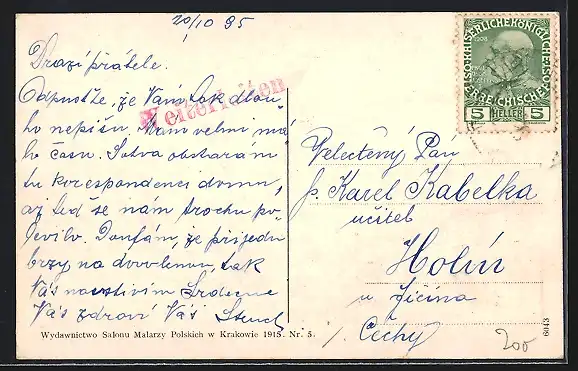 20/10 95
Drazí přátele.
Odpustťe, že Vám tak dlou-
ho nepíšu. Mám velmi má-
lo času. Sotva obstarám
tu korespondenci domů,
až teď se nám trochu po-
levilo. Doufám, že přijedu
brzy na dovolenou, tak
Vás navštívím Srdečně
Vás zdraví Váš
Wydawnictwo Salonu Malarzy Polskich w Krakowie 1915. Nr. 5.
KAISERLICHE KÖNIGLICHE
ÖSTERREICHISCHE
5 HELLER 5
Velectěný Pan
p. Karel Kabelka
učitel
Holín
u Jičína
Čechy
200
6043